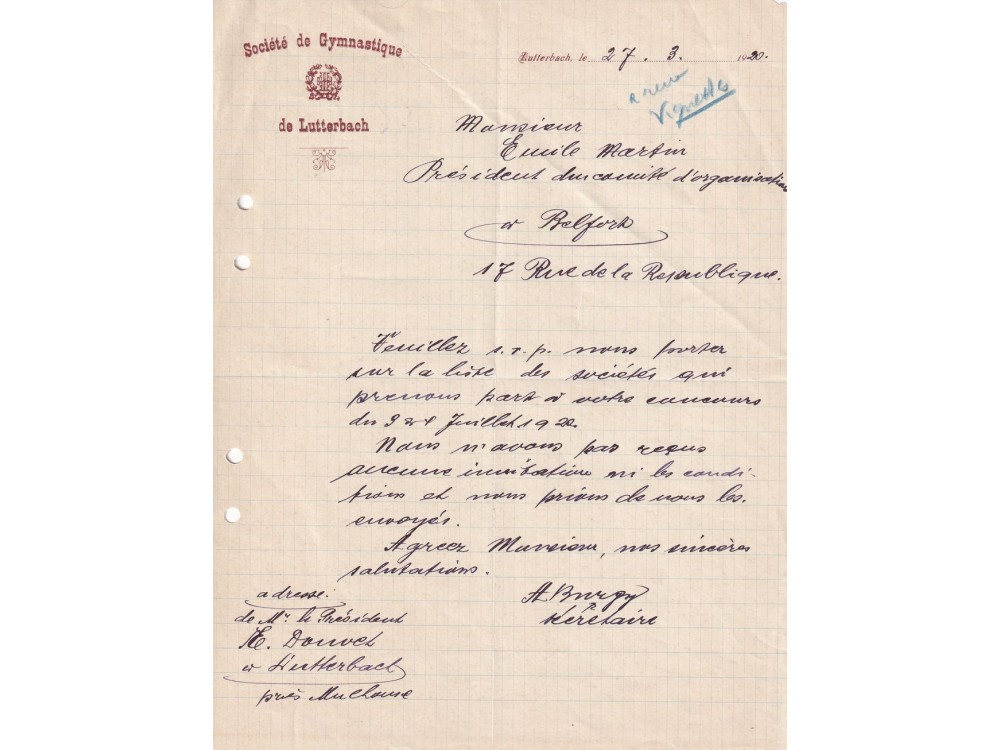 Société de Gymnastique
de Lutterbach
Lutterbach, le 27. 3. 1920.
a reçu
Vignettes
Monsieur
Emile Martin
Président du comité d'organisation
à Belfort
17 Rue de la Republique.
Veuillez s. v. p. nous porter
sur la liste des sociétés qui
prenons part à votre concours
du 3 et 4 Juillet 1920.
Nous n'avons pas reçus
aucune invitation ni les condi-
tions et nous prions de nous les
envoyés.
Agreez Monsieur, nos sincères
salutations.
A Burgy
Secrétaire
adresse.
de Mr. le Président
E. Donvet
à Lutterbach
près Mulhouse